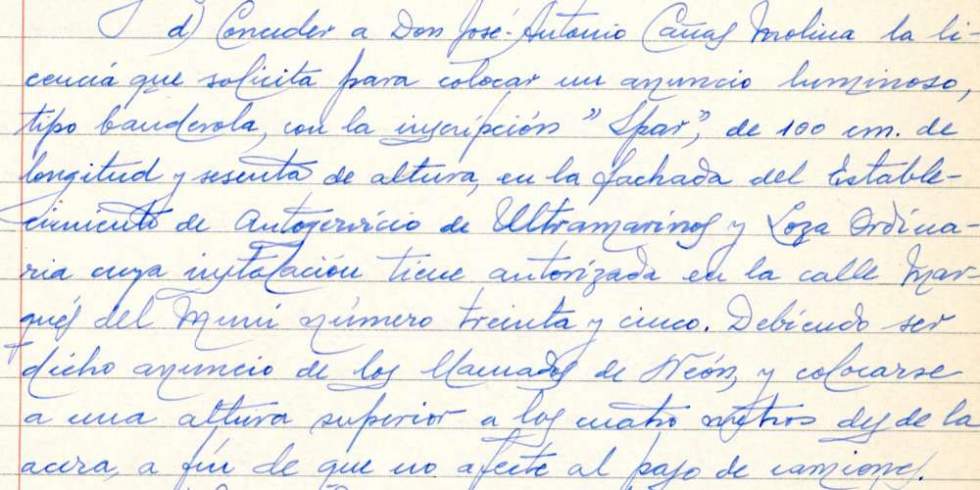 d) Conceder a Don José-Antonio Cañas Molina la li-
cencia que solicita para colocar un anuncio luminoso,
tipo banderola, con la inscripción "Spar", de 100 cm. de
longitud y sesenta de altura, en la fachada del Estable-
cimiento de Autoservicio de Ultramarinos y Loza Ordina-
ria cuya instalación tiene autorizada en la calle Mar-
qués del Muni número treinta y cinco. Debiendo ser
dicho anuncio de los llamados de Neón, y colocarse
a una altura superior a los cuatro metros desde la
acera, a fin de que no afecte al paso de camiones.